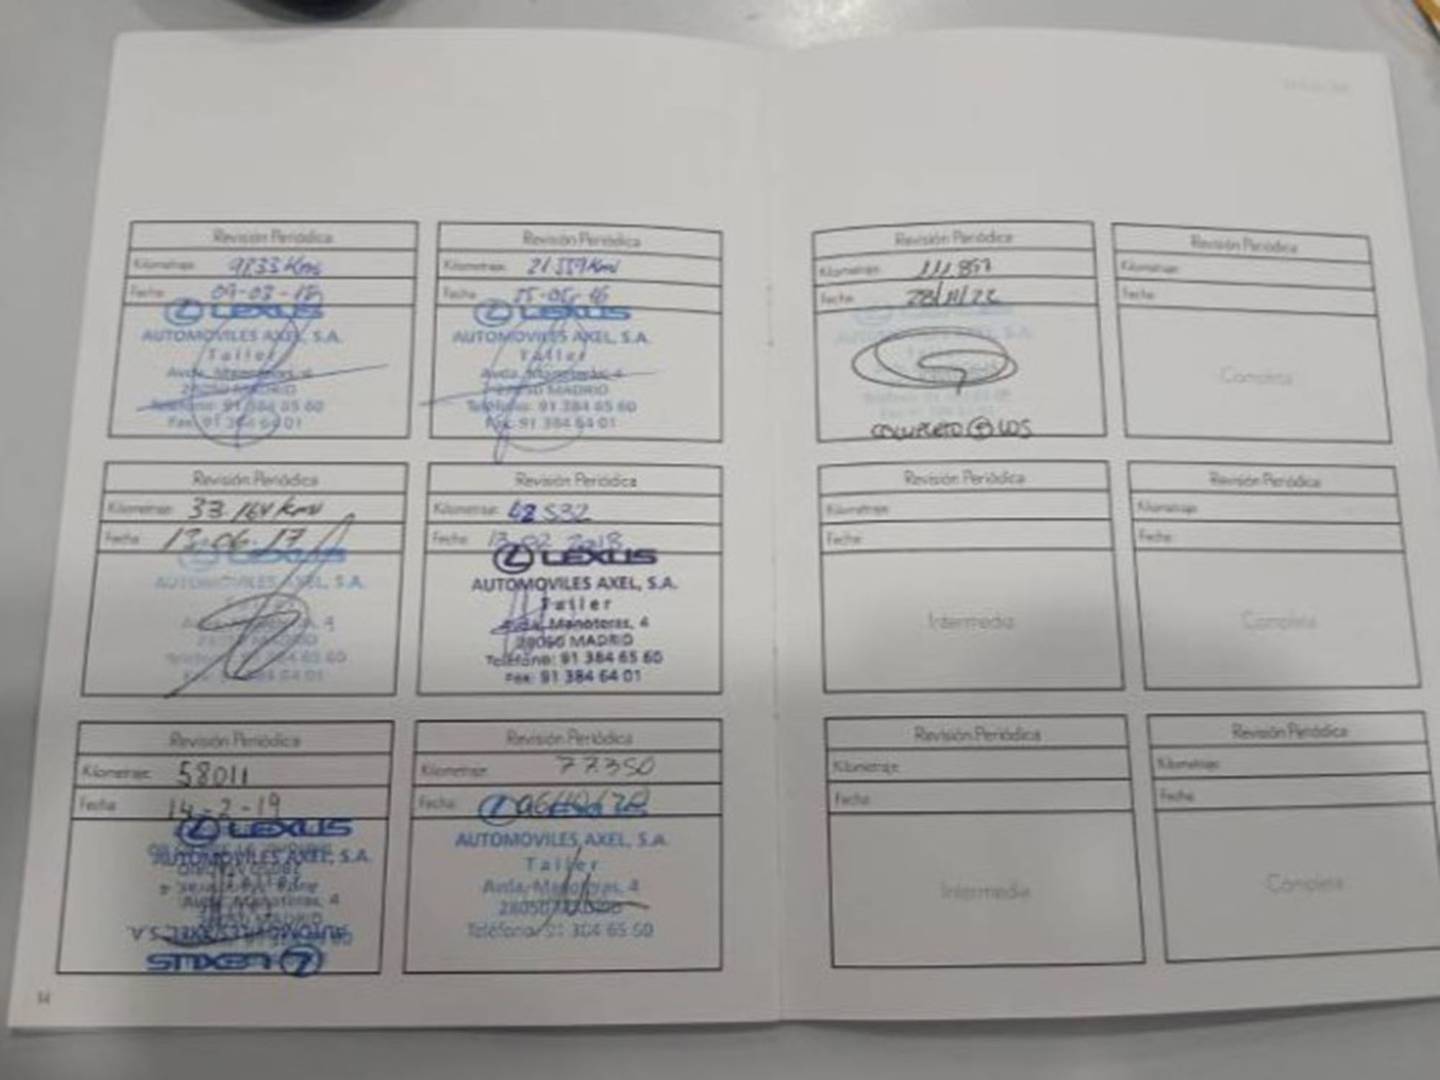 Revisión Periódica
Kilometraje:
Fecha:
LEXUS
AUTOMOVILES AXEL, S.A.
Taller
Avda. Manoteras, 4
28050 MADRID
Teléfono: 91 384 65 60
Fax: 91 384 64 01
Revisión Periódica
Kilometraje:
Fecha:
LEXUS
AUTOMOVILES AXEL, S.A.
Taller
Avda. Manoteras, 4
28050 MADRID
Teléfono: 91 384 65 60
Fax: 91 384 64 01
Revisión Periódica
Kilometraje: 111.857
Fecha: 28/11/22
COMPLETO
Revisión Periódica
Kilometraje:
Fecha:
Completa
Revisión Periódica
Kilometraje: 33.164 Kms
Fecha: 13-06-17
LEXUS
AUTOMOVILES AXEL, S.A.
Revisión Periódica
Kilometraje: 48532
Fecha: 13 02 2018
LEXUS
AUTOMOVILES AXEL, S.A.
Taller
Avda. Manoteras, 4
28050 MADRID
Teléfono: 91 384 65 60
Fax: 91 384 64 01
Revisión Periódica
Kilometraje:
Fecha:
Intermedia
Revisión Periódica
Kilometraje:
Fecha:
Completa
Revisión Periódica
Kilometraje: 58011
Fecha: 14-2-19
LEXUS
AUTOMOVILES AXEL, S.A.
Avda. Manoteras, 4
28050 MADRID
AUTOMOVILES AXEL, S.A.
LEXUS
Revisión Periódica
Kilometraje: 77350
Fecha:
LEXUS
AUTOMOVILES AXEL, S.A.
Taller
Avda. Manoteras, 4
28050 MADRID
Teléfono: 91 384 65 60
Revisión Periódica
Kilometraje:
Fecha:
Intermedia
Revisión Periódica
Kilometraje:
Fecha:
Completa
14